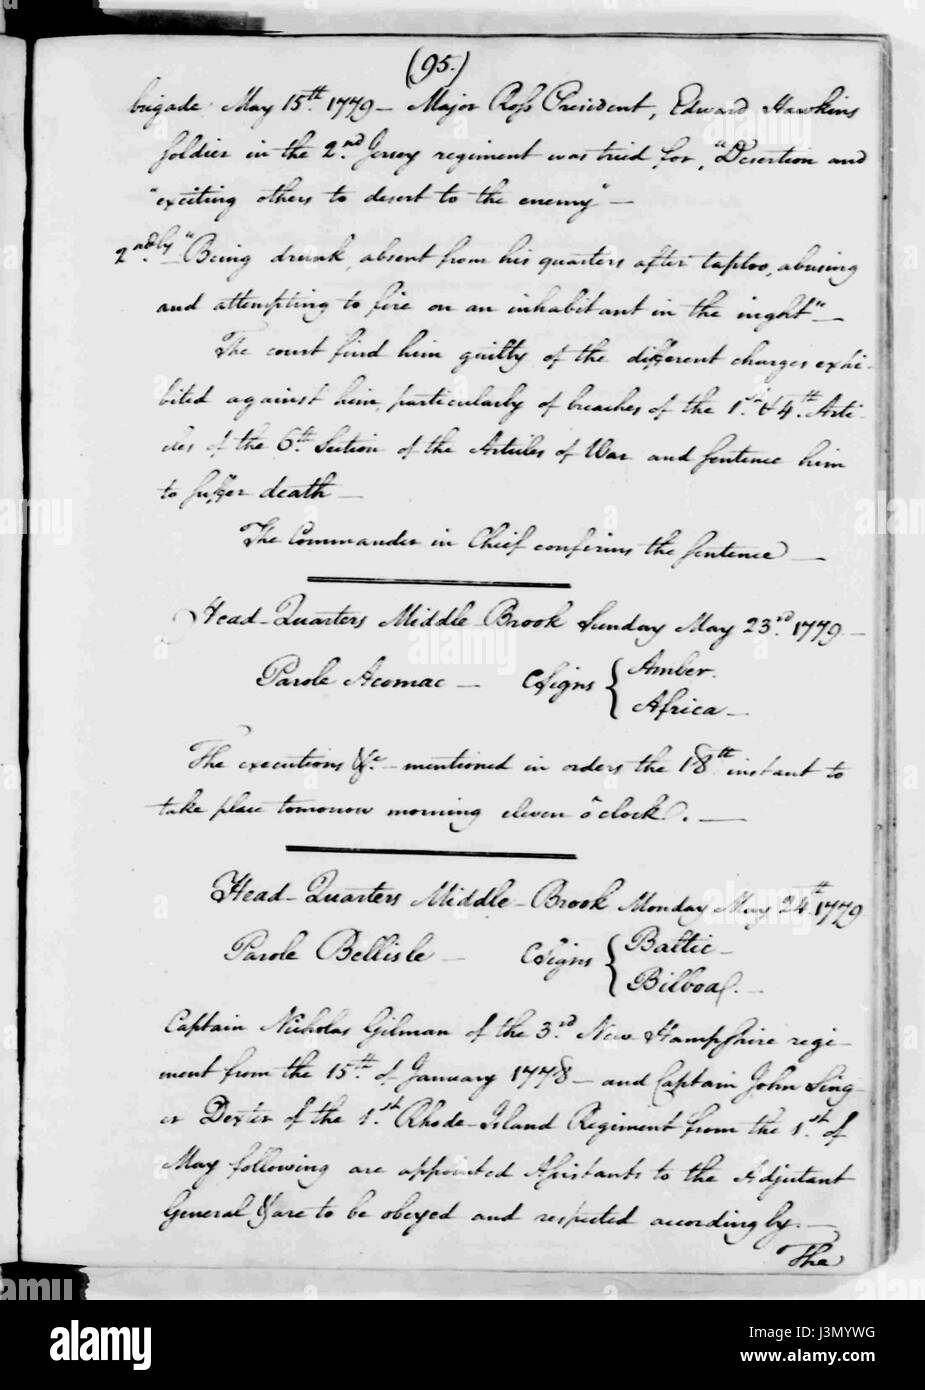 (95.)
brigade May 15th. 1779 — Major Ross President, Edward Hawkins
soldier in the 2nd. Jersey regiment was tried for, "Desertion and
"exciting others to desert to the enemy" —
2nd.ly "Being drunk, absent from his quarters after taptoo, abusing
and attempting to fire on an inhabitant in the night" —
The court find him guilty of the different charges exhi-
bited against him, particularly of breaches of the 1st. & 4th. Arti-
cles of the 6th. Section of the Articles of War and sentence him
to suffer death —
The Commander in Chief confirms the sentence —
Head-Quarters Middle-Brook Sunday May 23rd. 1779 —
Parole Acomac — CSigns { Amber.
Africa —
The executions &c. — mentioned in orders the 18th. instant to
take place tomorrow morning eleven o'clock. —
Head-Quarters Middle-Brook Monday May 24th. 1779
Parole Bellisle — CSigns { Baltic —
Bilboa. —
Captain Nicholas Gilman of the 3rd. New Hampshire regi-
ment from the 15th. of January 1778 — and Captain John Sing-
er Dexter of the 1st. Rhode-Island Regiment from the 1st. of
May following are appointed Assistants to the Adjutant
General & are to be obeyed and respected accordingly. —
The
alamy
alamy
Image ID: J3MYWG
www.alamy.com